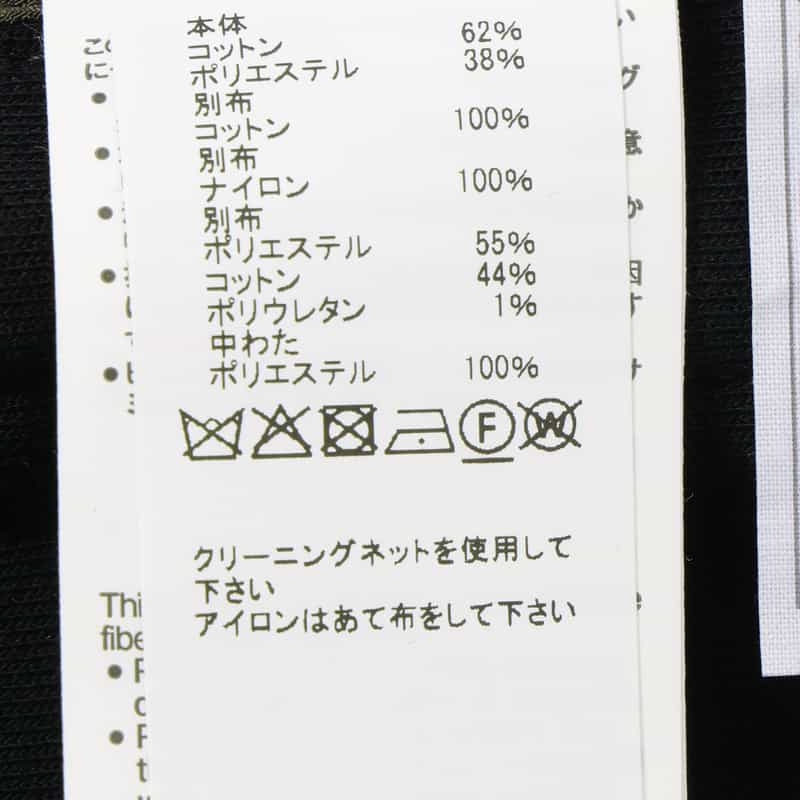 本体
コットン 62%
ポリエステル 38%
別布
コットン 100%
別布
ナイロン 100%
別布
ポリエステル 55%
コットン 44%
ポリウレタン 1%
中わた
ポリエステル 100%
F W
クリーニングネットを使用して
下さい
アイロンはあて布をして下さい